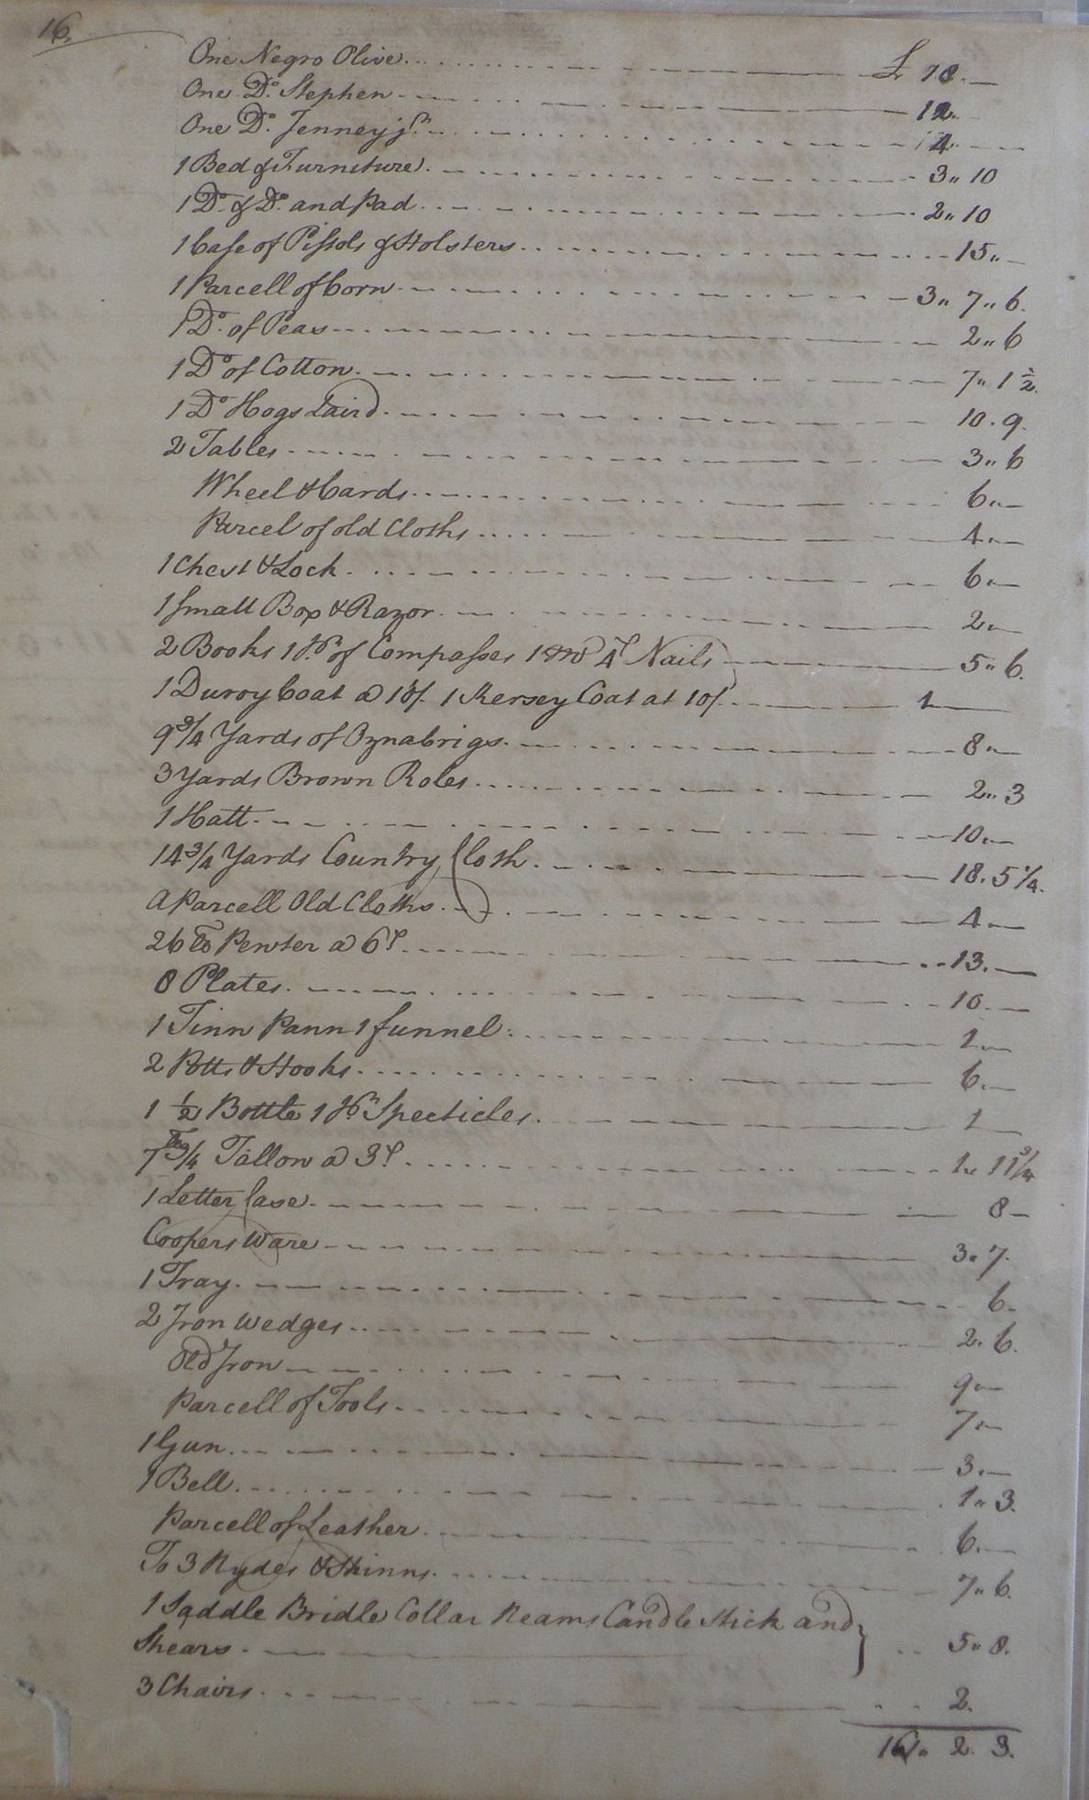 16.
One Negro Olive £ 18.—
One Do. Stephen 12.
One Do. Jenney jr. 4.
1 Bed & Furniture 3" 10
1 Do. & Do. and Pad 2" 10
1 Case of Pistols & Holsters 15"—
1 Parcell of Corn 3" 7" 6.
1 Do. of Peas 2" 6
1 Do of Cotton 7" 1 1/2.
1 Do Hogs Laird 10. 9.
2 Tables 3" 6
Wheel & Cards 6"—
Parcel of old Cloths 4"—
1 Chest & Lock 6"—
1 Small Box & Razor 2"—
2 Books 1 pr. of Compasses 4d Nails 5" 6.
1 Duroy Coat a 10/. 1 Kersey Coat at 10/. 1
9 3/4 Yards of Oznabrigs 8"—
3 Yards Brown Roles 2" 3
1 Hatt 10"—
14 3/4 Yards Country Cloth 18. 5 1/4.
A Parcell Old Cloths 4"—
26 lb Pewter a 6d 13.—
8 Plates 10.—
1 Tinn Pann 1 funnel 1"—
2 Potts & Hooks 6.—
1 1/2 Bottle 1 pr Specticles 1
7 3/4 Tallow a 3d 1" 11 3/4
1 Letter Case 8—
Coopers Ware 3" 7.
1 Tray 6.
2 Iron Wedges 2. 6.
Old Iron 9"—
Parcell of Tools 7"—
1 Gun 3.—
1 Bell 1" 3.
Parcell of Leather 6.—
To 3 Hydes & Skinns 7" 6.
1 Saddle Bridle Collar Candle Stick and
Shears 5" 8.
3 Chairs 2.
2. 3.